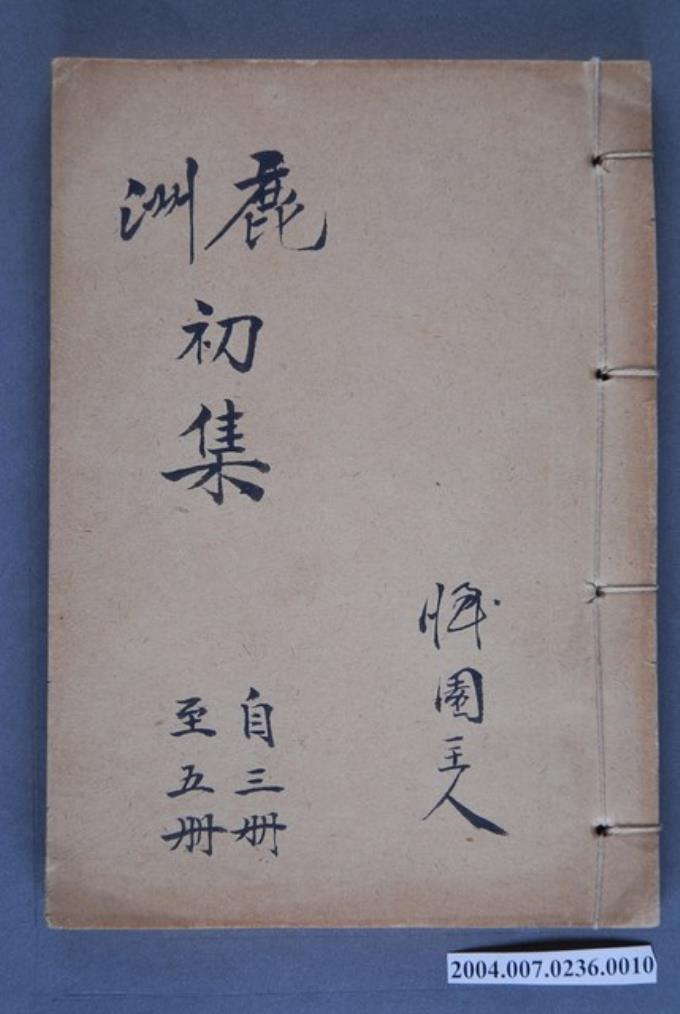 園主人
鹿洲初集
自三冊
至五冊
2004.007.0236.0010